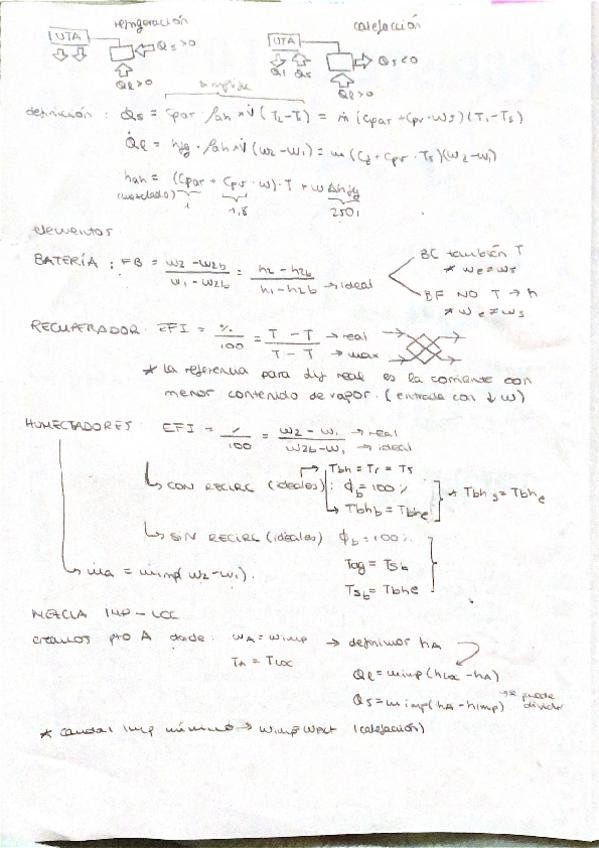 refrigeración
calefacción
UTA
Qs>0
Ql>0
UTA
Ql Qs
Qs<0
Ql>0
definición : Q̇s = Cpar ρah × V̇ (T2-T1) = ṁ (Cpar + Cpv · Ws) (T1-Ts)
Q̇l = hfg · ρah × V̇ (w2-w1) = ṁ (Cf + Cpv · Ts)(w2-w1)
hah = (Cpar + Cpv · w) · T + w Δhfg
1 1,8 2501
elementos
BATERÍA : FB = w2-w2b / w1-w2b = h2-h2b / h1-h2b → ideal
BC también T
* we = ws
BF NO T → h
* we ≠ ws
RECUPERADOR. EFI = % / 100 = T-T / T-T → real → max
* la referencia para dif real es la corriente con
menor contenido de vapor. (entrada con ↓ w)
HUMECTADORES: EFI = / 100 = w2-w1 / w2b-w1 → real → ideal
CON RECIRC (ideales) : Tbh = Tr = Ts
ϕb = 100 %
Tbhb = Tbhe
* Tbhs = Tbhe
SIN RECIRC (ideales) ϕb = 100 %
Tag = Tsb
Tsb = Tbhe
ṁa = ṁimp (w2-w1).
MEZCLA IMP-LOC
creamos pto A donde: wA = wimp → definimos hA
TA = TLOC
Ql = mimp (hLOC - hA)
Qs = mimp (hA - himp) → se puede
dividir
* caudal imp mínimo → wimp = wext (calefacción)